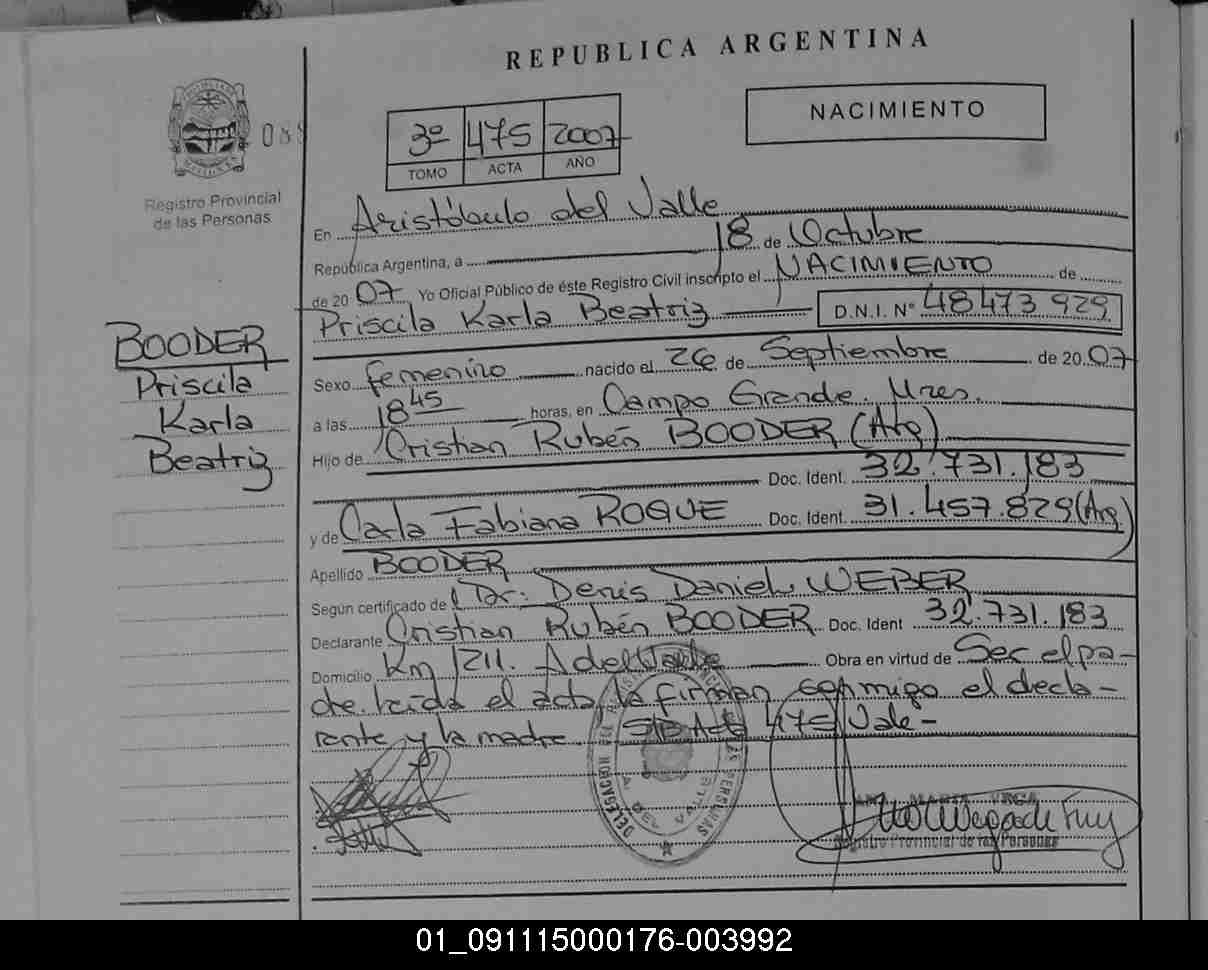 REPUBLICA ARGENTINA
NACIMIENTO
3º 475 2007
TOMO ACTA AÑO
088
Registro Provincial
de las Personas
En Aristóbulo del Valle
República Argentina, a 18 de Octubre
de 2007 Yo Oficial Público de éste Registro Civil inscripto el NACIMIENTO de
Priscila Karla Beatriz D.N.I. Nº 48473929
BOODER
Priscila
Karla
Beatriz
Sexo femenino nacido el 26 de Septiembre de 2007
a las 18 45 horas, en Campo Grande. Mnes.
Hijo de Cristian Rubén BOODER (Arg)
Doc. Ident. 32.731.183
y de Carla Fabiana ROQUE Doc. Ident. 31.457.829 (Arg)
Apellido BOODER
Según certificado de Dr: Denis Daniel WEBER
Declarante Cristian Rubén BOODER Doc. Ident 32.731.183
Domicilio Km 1211. A del Valle Obra en virtud de Ser el pa-
dre. Leída el acta, la firman conmigo el decla-
rante y la madre. S/B Acta 475 Vale-
DELEGACION
A. DEL VALLE
PERSONAS
MARTA
Registro Provincial de las Personas
01_091115000176-003992